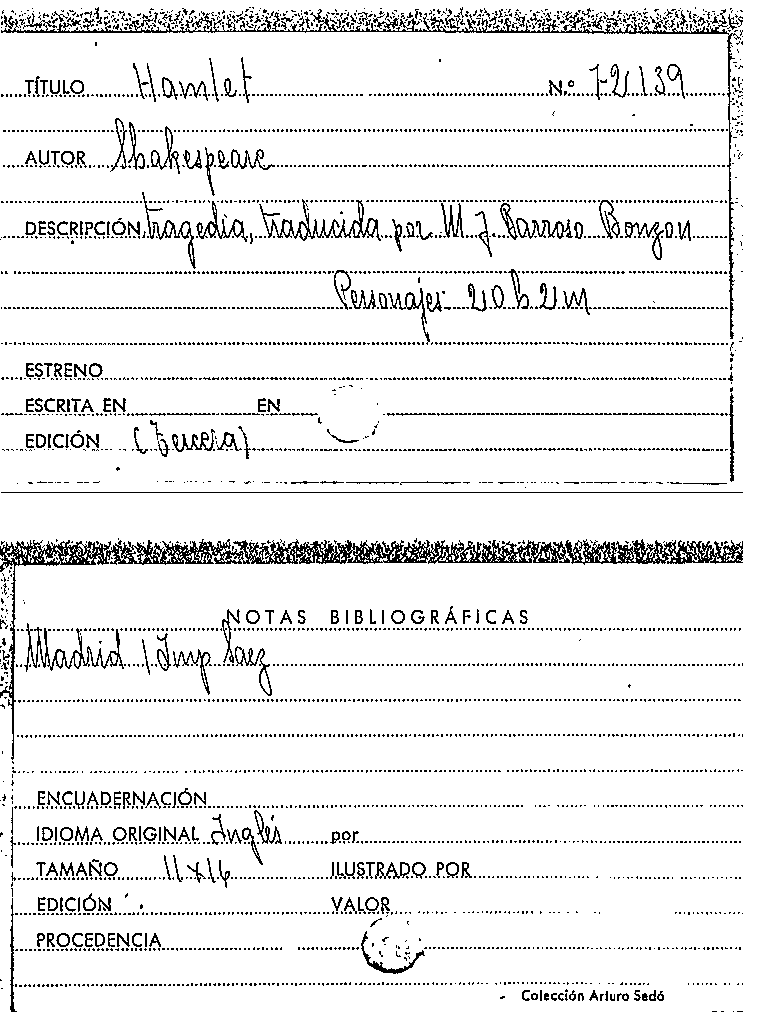 TÍTULO Hamlet N.º 72139
AUTOR Shakespeare
DESCRIPCIÓN tragedia, traducida por M J Barroso Bonzon
Personajes: 20 h 2 m
ESTRENO
ESCRITA EN EN
EDICIÓN (Tercera)
NOTAS BIBLIOGRÁFICAS
Madrid / Imp Saez
ENCUADERNACIÓN
IDIOMA ORIGINAL Inglés por
TAMAÑO 11x16 ILUSTRADO POR
EDICIÓN VALOR
PROCEDENCIA
Colección Arturo Sedó